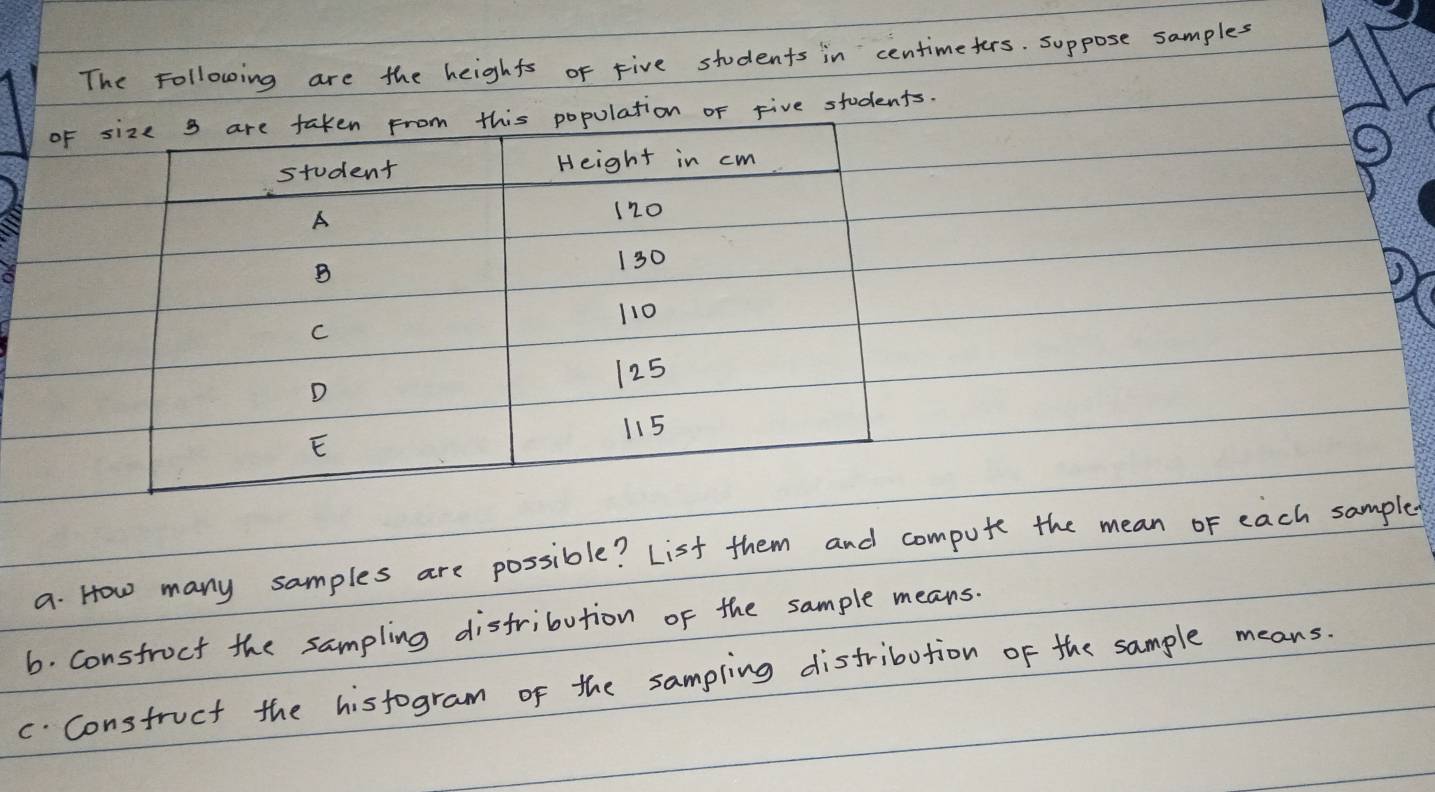 The Following are the heights of Five students in centimeters. Suppose samples
of size 3 are taken From this population of Five students.
Student Height in cm
A 120
B 130
C 110
D 125
E 115
a. How many samples are possible? List them and compute the mean of each sample.
b. Construct the sampling distribution of the sample means.
c. Construct the histogram of the sampling distribution of the sample means.